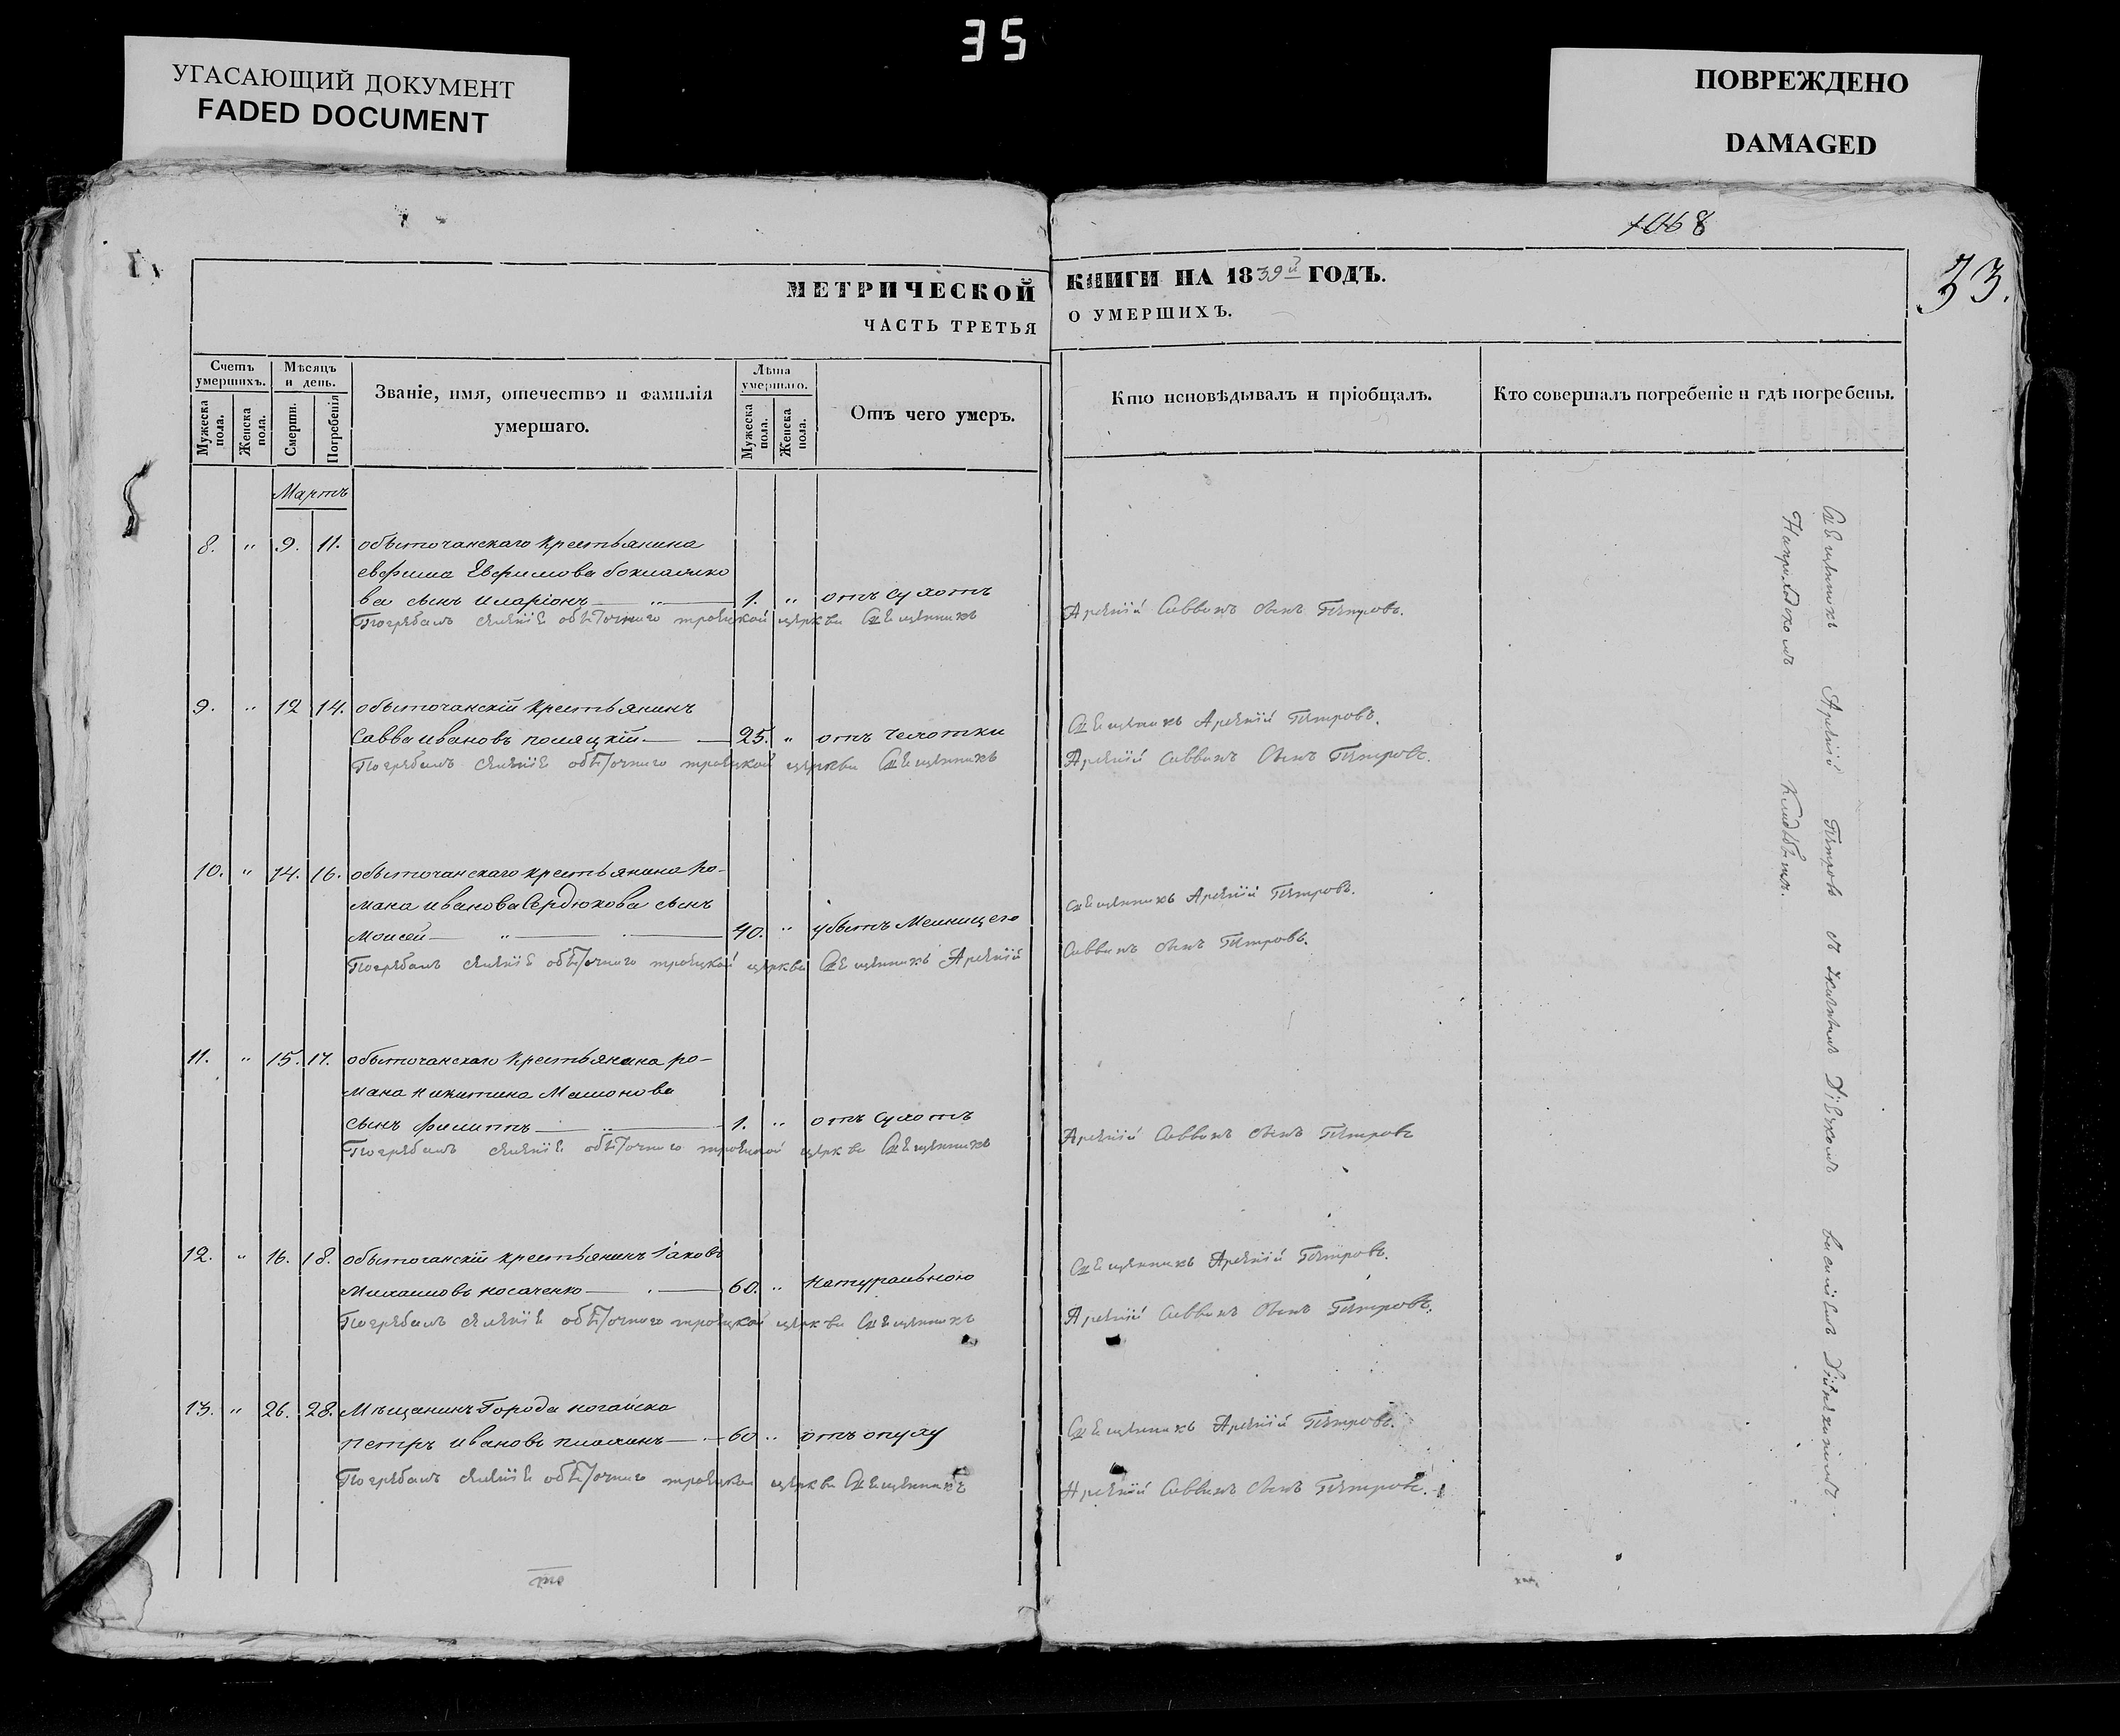 35
УГАСАЮЩИЙ ДОКУМЕНТ
FADED DOCUMENT
ПОВРЕЖДЕНО
DAMAGED
1068
33.
МЕТРИЧЕСКОЙ КНИГИ НА 1839й ГОДЪ.
ЧАСТЬ ТРЕТЬЯ О УМЕРШИХЪ.
Счетъ умершихъ.
Мужеска пола.
Женска пола.
Мѣсяцъ и день.
Смерти.
Погребенія
Званіе, имя, отечество и фамилія умершаго.
Лѣта умершаго.
Мужеска пола.
Женска пола.
Отъ чего умеръ.
Кто исповѣдывалъ и пріобщалъ.
Кто совершалъ погребеніе и гдѣ погребены.
Мартъ
8. " 9. 11. обыточанскаго крестьянина
евфима Евфимова
ва сынъ иларіонъ — " — 1. " отъ сухотъ
Погребалъ обыточнаго троецкой церкви священникъ Арсеній Саввинъ сынъ Петровъ.
9. " 12 14. обыточанскій крестьянинъ
Савва ивановъ поляцкій — 25. " отъ чехотки
Священникъ Арсеній Петровъ.
Погребалъ обыточнаго троецкой церкви священникъ Арсеній Саввинъ сынъ Петровъ.
10. " 14. 16. обыточанскаго крестьянина ро-
мана иванова Сердюкова сынъ
Моисей — " — 40. " убытъ Мелницею
священникъ Арсеній Петровъ.
Погребалъ обыточнаго троецкой церкви священникъ Арсеній Саввинъ сынъ Петровъ.
11. " 15. 17. обыточанскаго крестьянина ро-
мана никитина Мамонова
сынъ филиппъ — " — 1. " отъ сухотъ
Погребалъ обыточнаго троецкой церкви священникъ Арсеній Саввинъ сынъ Петровъ
12. " 16. 18. обыточанскій крестьянинъ Іаковъ
Михаиловъ носаченко — 60. " натуральною
Священникъ Арсеній Петровъ.
Погребалъ обыточнаго троецкой церкви священникъ Арсеній Саввинъ сынъ Петровъ.
13. " 26. 28. Мѣщанинъ Города ногайска
петръ ивановъ — 60 " отъ опуху
Священникъ Арсеній Петровъ.
Погребалъ обыточнаго троецкой церкви священникъ Арсеній Саввинъ сынъ Петровъ.
Священникъ Арсеній Петровъ
Наприходскомъ Кладбищѣ.